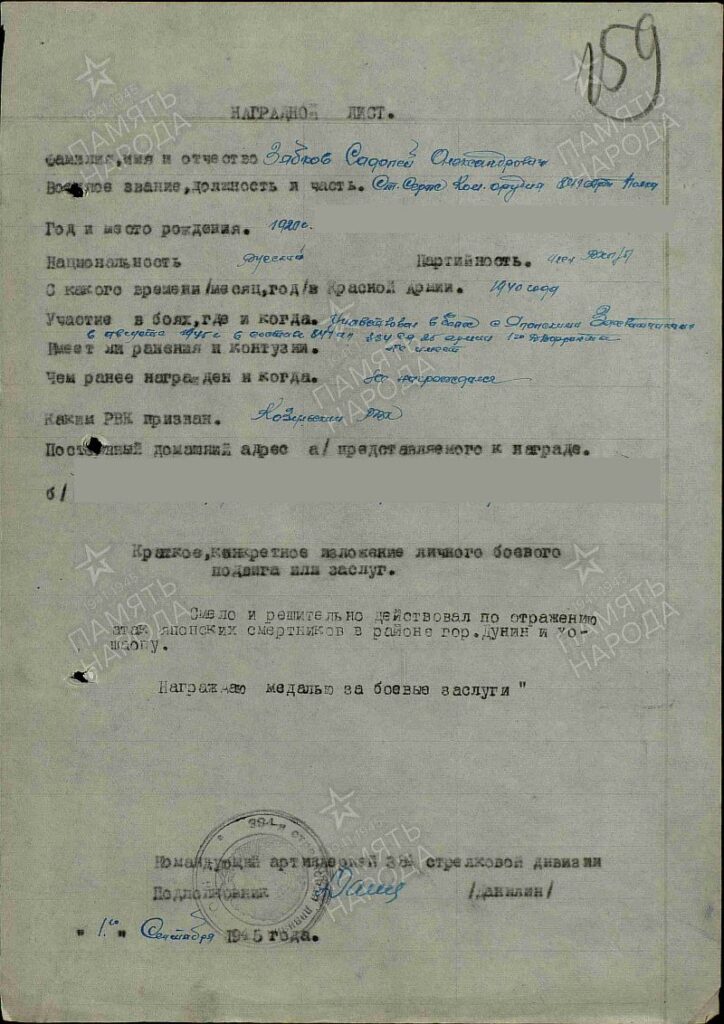 159
НАГРАДНОЙ ЛИСТ.
Фамилия,имя и отчество Зябков Александрович
Военное звание,должность и часть. Ст. Серж Ком. орудия Полка
Год и место рождения. 1920г.
Национальность Русский Партийность. член ВКП/б/
С какого времени/месяц,год/в Красной Армии. 1940 года
Участие в боях,где и когда. Участвовал в боях с Японскими Захватчиками
в августе 1945г в составе армии
Имеет ли ранения и контузии. не имеет
Чем ранее награжден и когда. Не награждался
Каким РВК призван. РВК
Постоянный домашний адрес а/ представляемого к награде.
б/
Краткое,конкретное изложение личного боевого
подвига или заслуг.
Смело и решительно действовал по отражению
атак японских смертников в районе гор.Дунин и Хо-
шаопу.
Награждаю медалью за боевые заслуги "
Командующий артиллерией 384 стрелковой дивизии
Подполковник /Данилин/
" 1 " Сентября 1945 года.
ПАМЯТЬ НАРОДА
1941-1945